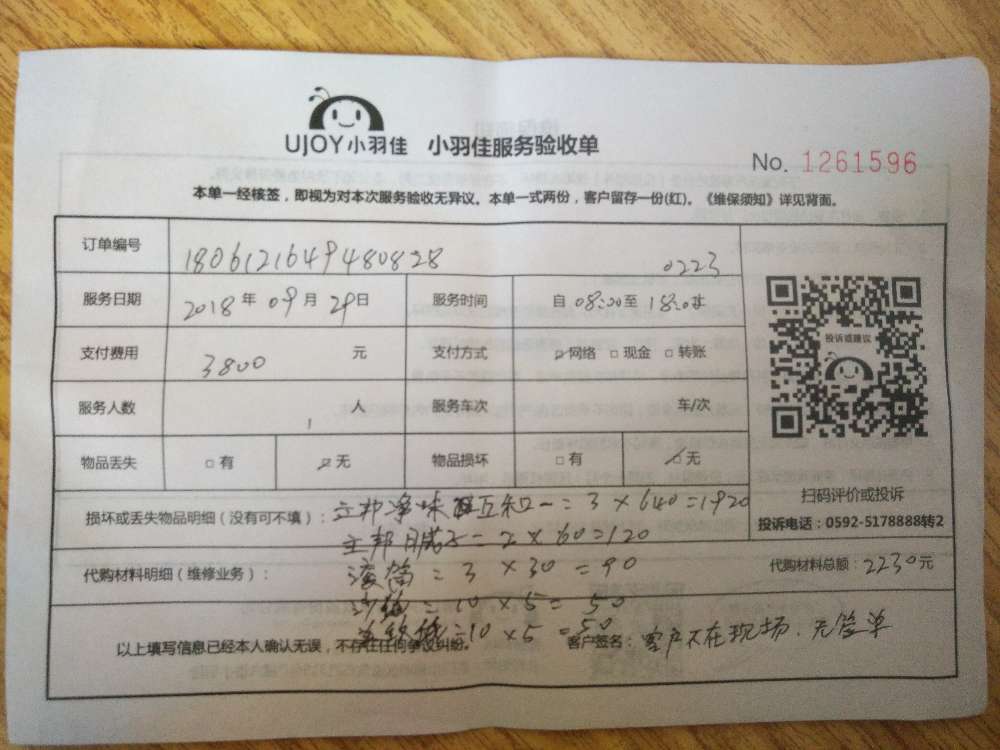 UJOY小羽佳 小羽佳服务验收单
No. 1261596
本单一经核签，即视为对本次服务验收无异议。本单一式两份，客户留存一份(红)。《维保须知》详见背面。
订单编号 1806121649480828 0223
服务日期 2018年09月29日 服务时间 自08:00至18:0时
支付费用 3800 元 支付方式 ☑网络 □现金 □转账
投诉或建议
服务人数 1 人 服务车次 车/次
物品丢失 □有 ☑无 物品损坏 □有 ☑无
扫码评价或投诉
投诉电话：0592-5178888转2
损坏或丢失物品明细（没有可不填）： 立邦净味五和一=3×640=1920
立邦腻子=2×60=120
代购材料明细（维修业务）： 滚筒=3×30=90
代购材料总额：2230元
沙纸=10×5=50
美纹纸=10×5=50
以上填写信息已经本人确认无误，不存在任何争议纠纷。 客户签名：客户不在现场．无签单